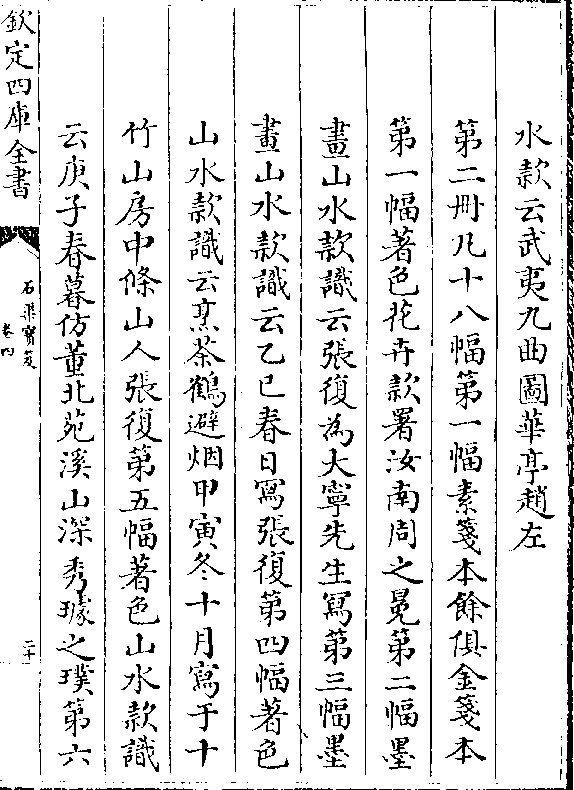 水款云武夷九曲圖華亭趙左
第二冊凡十八幅第一幅素箋本餘俱金箋本
第一幅著色花卉款署汝南周之冕第二幅墨
畫山水款識云張復為大寧先生寫第三幅墨
畫山水款識云乙巳春日寫張復第四幅著色
山水款識云烹茶鶴避烟甲寅冬十月寫于十
竹山房中條山人張復第五幅著色山水款識
云庚子春暮仿董北苑溪山深秀璩之璞第六
欽定四庫全書
石渠寶笈
卷四
二十